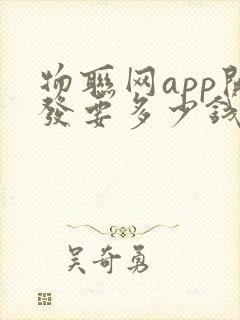 物聯网app開
發要多少錢
吴奇勇